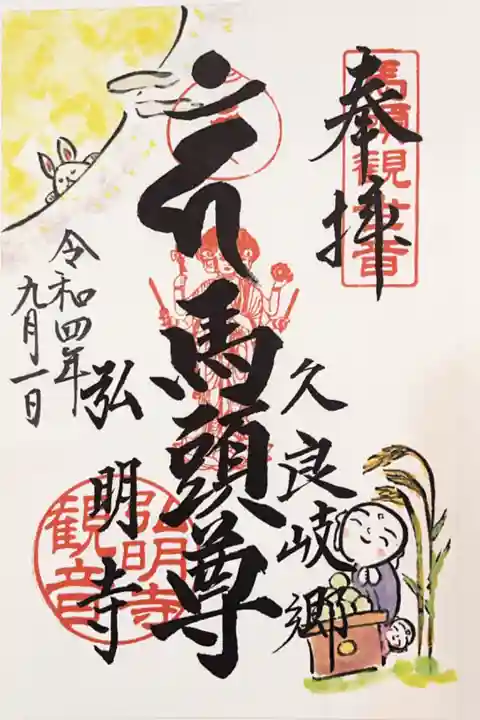 奉拝
馬頭観世音
久良岐郷
馬頭尊
弘明寺
弘明寺
観音
令和四年
九月一日